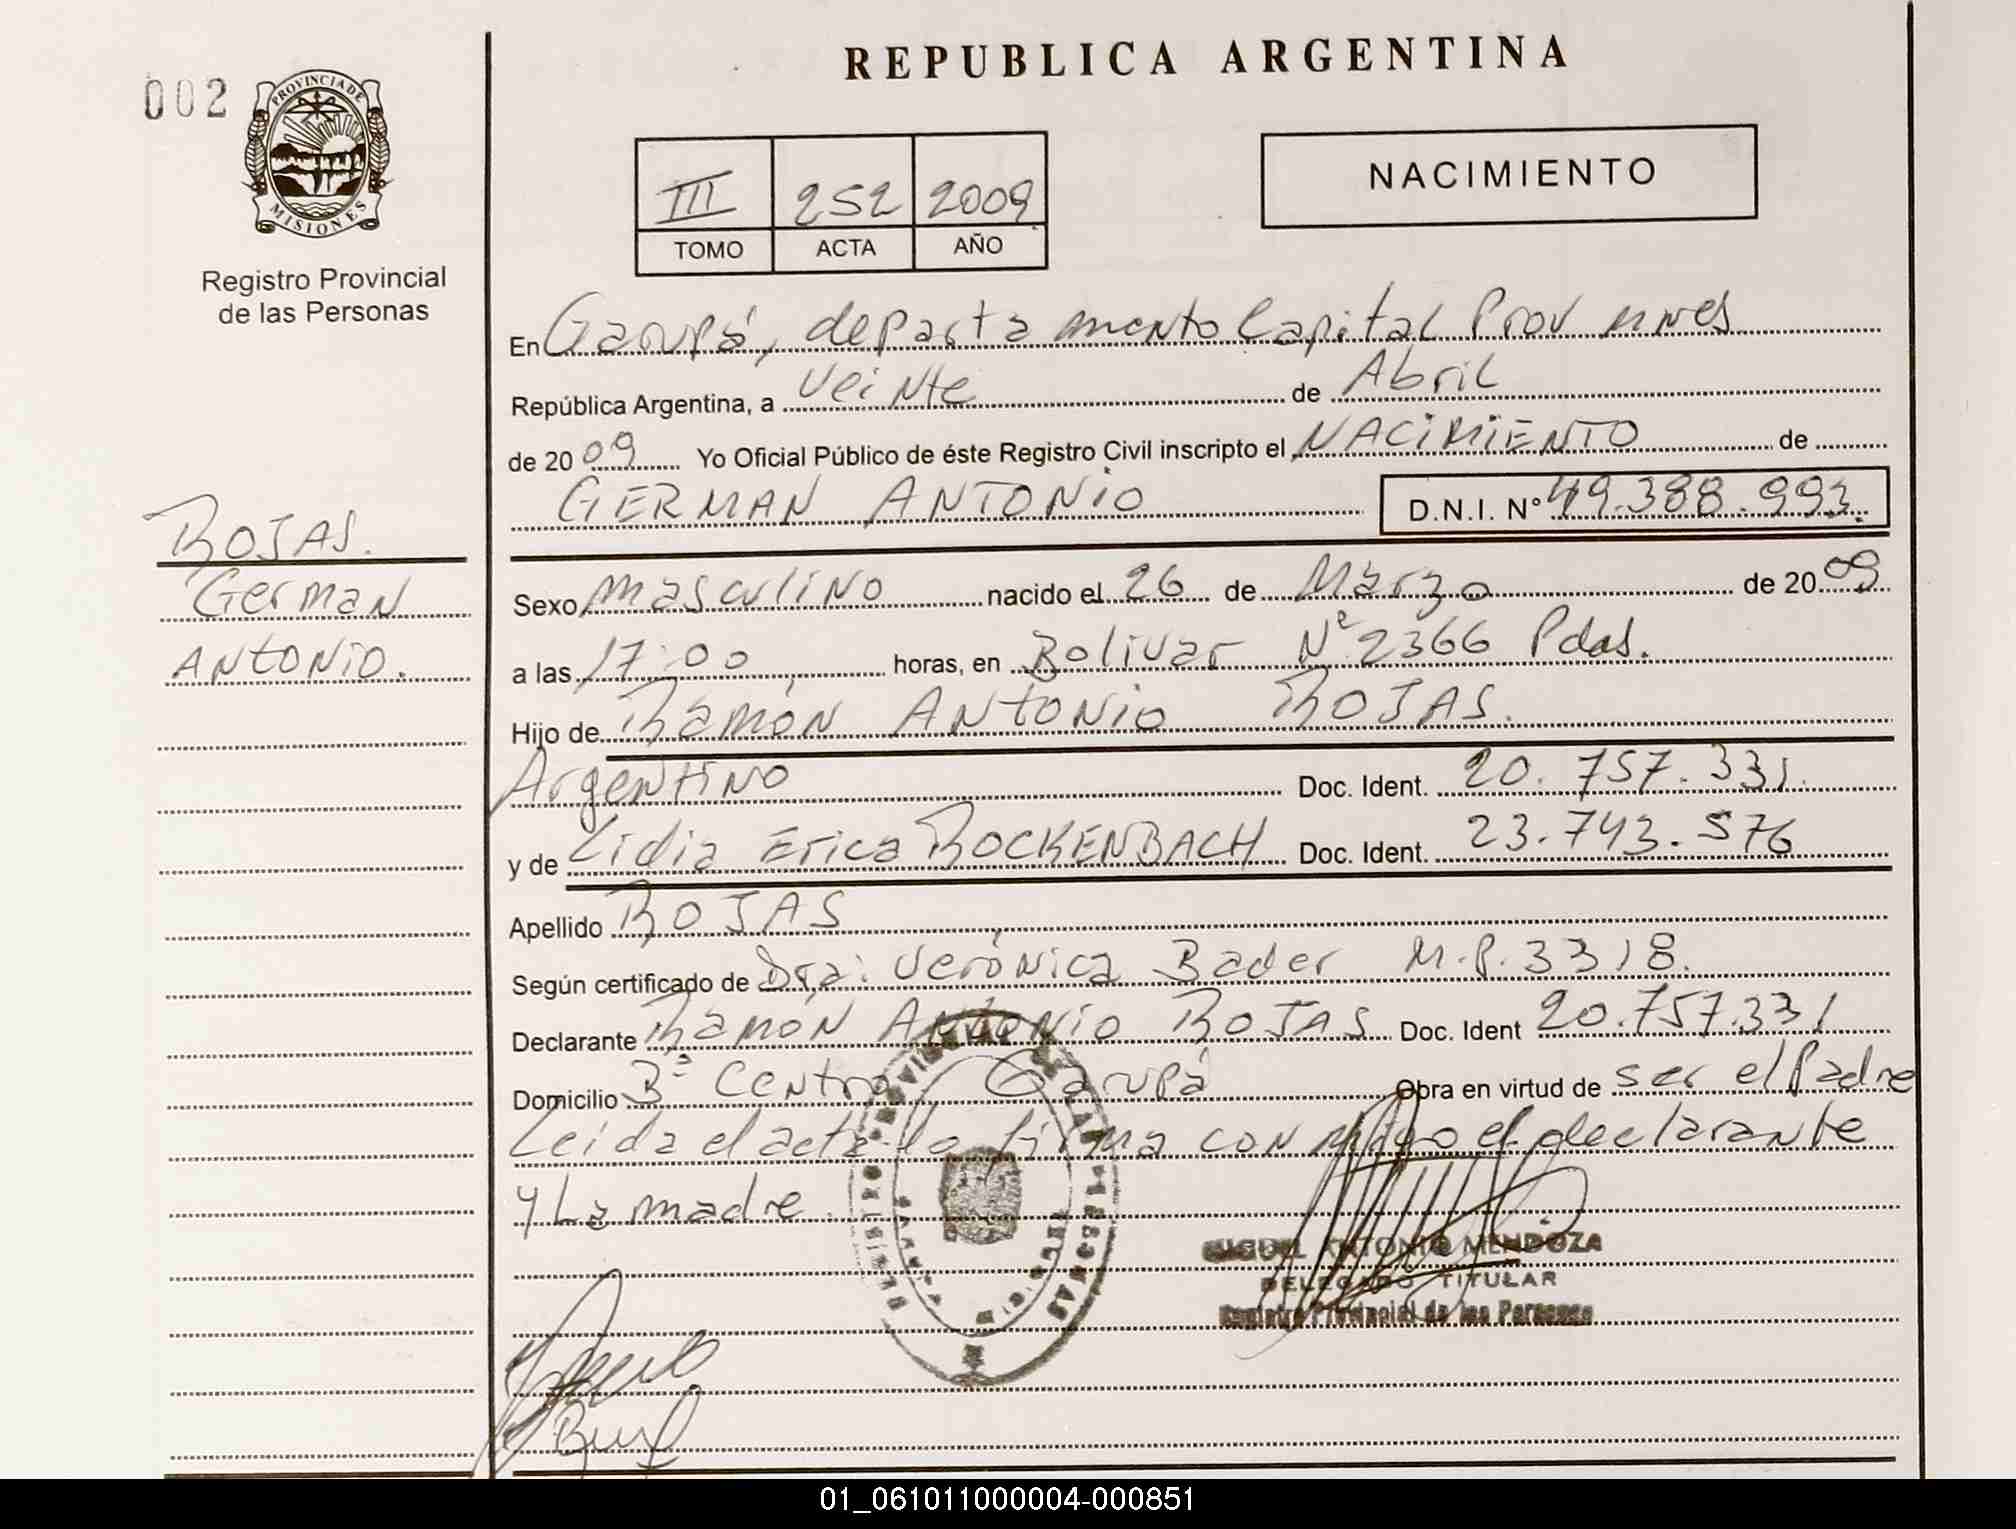 002
PROVINCIA DE
MISIONES
Registro Provincial
de las Personas
ROJAS.
German
Antonio.
REPUBLICA ARGENTINA
III 252 2009
TOMO ACTA AÑO
NACIMIENTO
En Garupá, departamento Capital Prov mnes
República Argentina, a veinte de Abril
de 2009 Yo Oficial Público de éste Registro Civil inscripto el NACIMIENTO de
GERMAN ANTONIO D.N.I. Nº 49.388.993.
Sexo masculino nacido el 26 de Marzo de 2009
a las 17:00 horas, en Bolivar Nº 2366 Pdas.
Hijo de Ramón Antonio ROJAS.
Argentino Doc. Ident. 20.757.331.
y de Lidia Erica ROCKENBACH Doc. Ident. 23.743.576
Apellido ROJAS
Según certificado de Dra: Verónica Bader M.P.3318.
Declarante Ramón Antonio ROJAS Doc. Ident 20.757.331
Domicilio Bº Centro Garupá Obra en virtud de ser el Padre
Leida el acta la firma conmigo el declarante
y La madre.
MIGUEL ANTONIO MENDOZA
DELEGADO TITULAR
Registro Provincial de las Personas
01_061011000004-000851